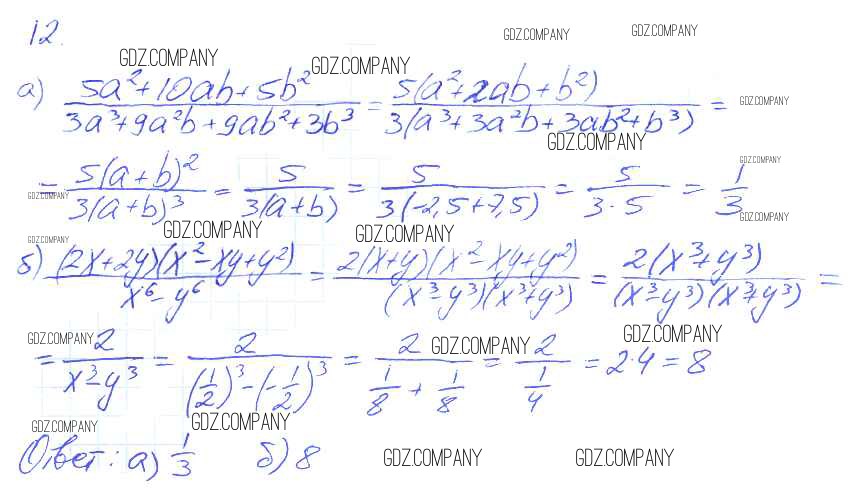 12.
GDZ.COMPANY GDZ.COMPANY
GDZ.COMPANY GDZ.COMPANY
а) (5a²+10ab+5b²)/(3a³+9a²b+9ab²+3b³) = 5(a²+2ab+b²)/3(a³+3a²b+3ab²+b³) =
GDZ.COMPANY
GDZ.COMPANY
GDZ.COMPANY
= 5(a+b)²/3(a+b)³ = 5/3(a+b) = 5/3(-2,5+7,5) = 5/3·5 = 1/3
GDZ.COMPANY
GDZ.COMPANY
GDZ.COMPANY GDZ.COMPANY GDZ.COMPANY
б) (2x+2y)(x²-xy+y²)/x⁶-y⁶ = 2(x+y)(x²-xy+y²)/(x³-y³)(x³+y³) = 2(x³+y³)/(x³-y³)(x³+y³) =
GDZ.COMPANY GDZ.COMPANY GDZ.COMPANY
= 2/x³-y³ = 2/(1/2)³-(-1/2)³ = 2/(1/8+1/8) = 2/(1/4) = 2·4 = 8
GDZ.COMPANY GDZ.COMPANY
Ответ: а) 1/3 б) 8
GDZ.COMPANY GDZ.COMPANY